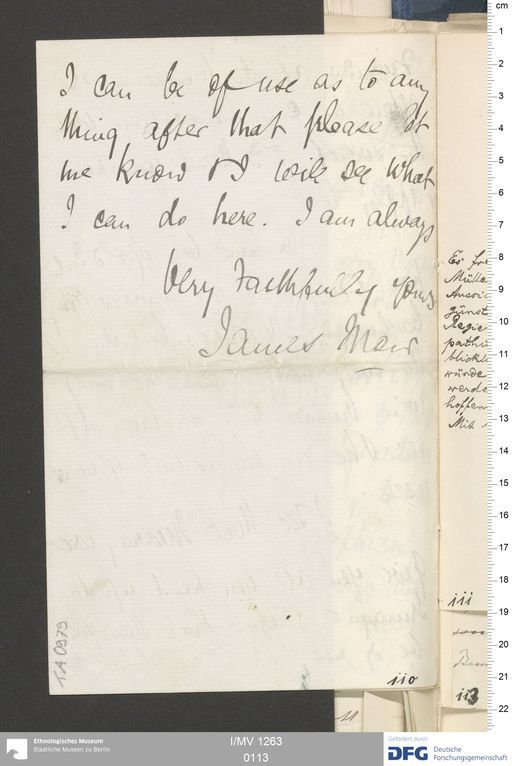 I can be of use as to any
thing after that please let
me know & I will see what
I can do here. I am always
Very Faithfully yours
James Moir
110
TA 0979
Es fre
Mülle
günst
Regie
pathi
blickl
würde
werde
hoffen
Mit
111
113
cm
1
2
3
4
5
6
7
8
9
10
11
12
13
14
15
16
17
18
19
20
21
22
Ethnologisches Museum
Staatliche Museen zu Berlin
I/MV 1263
0113
Gefördert durch
DFG Deutsche
Forschungsgemeinschaft